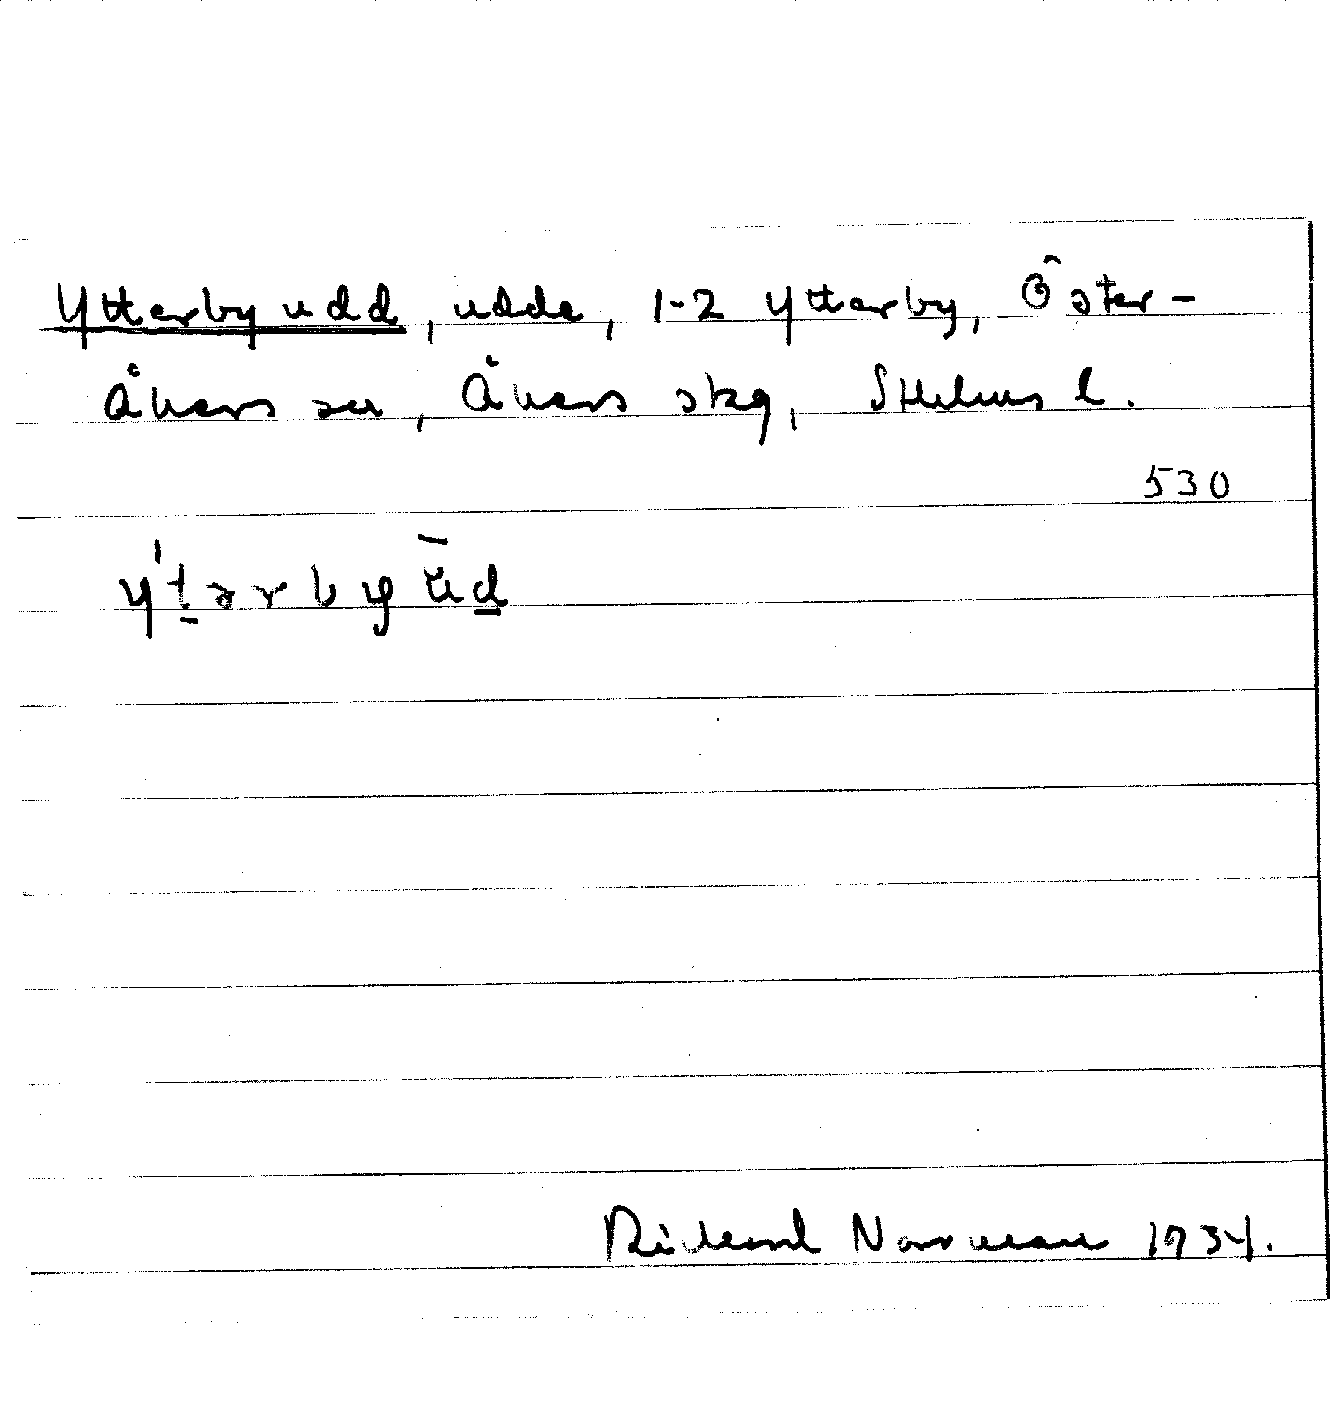 Ytterby udd, udde, 1-2 Ytterby, Öster-
Åkers sn, Åkers skg, Sthlms l.
530
y'tərbyùd
Rickard Norman 1934.